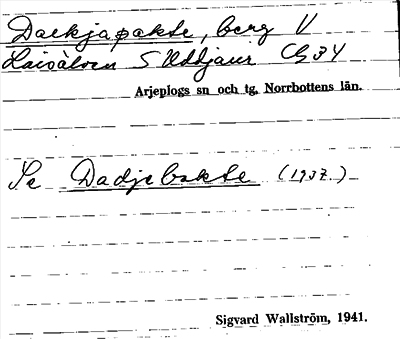 Daekjapakte, berg V
Laisälven S Uddjaur Cg 34
Arjeplogs sn och tg. Norrbottens län.
Se Dadjebakte (1937.)
Sigvard Wallström, 1941.